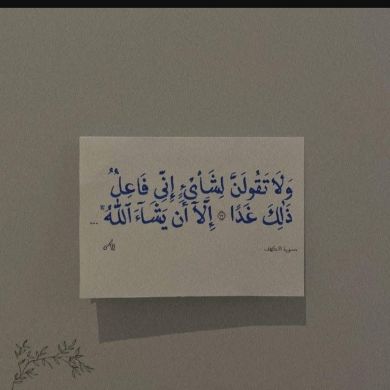 وَلَا تَقُولَنَّ لِشَا۟ىْءٍ إِنِّى فَاعِلٌۭ
ذَٰلِكَ غَدًا ۝ إِلَّآ أَن يَشَآءَ ٱللَّهُ ۚ ...
سورة الكهف